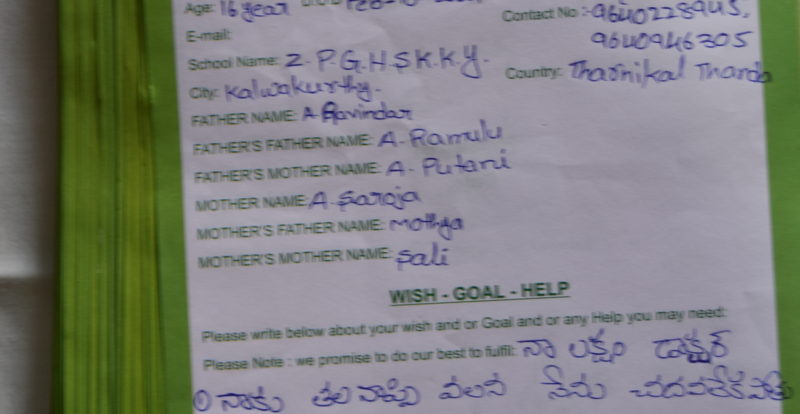 Age: 16 year
Contact No :- 9640228945,
9640946305
E-mail:
School Name: Z. P. G. H. S K.K.Y.
City: Kalwakurthy.
Country: Tharnikal Thanda
FATHER NAME: A Ravindar
FATHER'S FATHER NAME: A. Ramulu
FATHER'S MOTHER NAME: A. Putani
MOTHER NAME: A. Saroja
MOTHER'S FATHER NAME: Mothya
MOTHER'S MOTHER NAME: Sali
WISH - GOAL - HELP
Please write below about your wish and or Goal and or any Help you may need:
Please Note : we promise to do our best to fulfil: నా లక్ష్యం డాక్టర్
నాకు తల నొప్పి వలన నేను